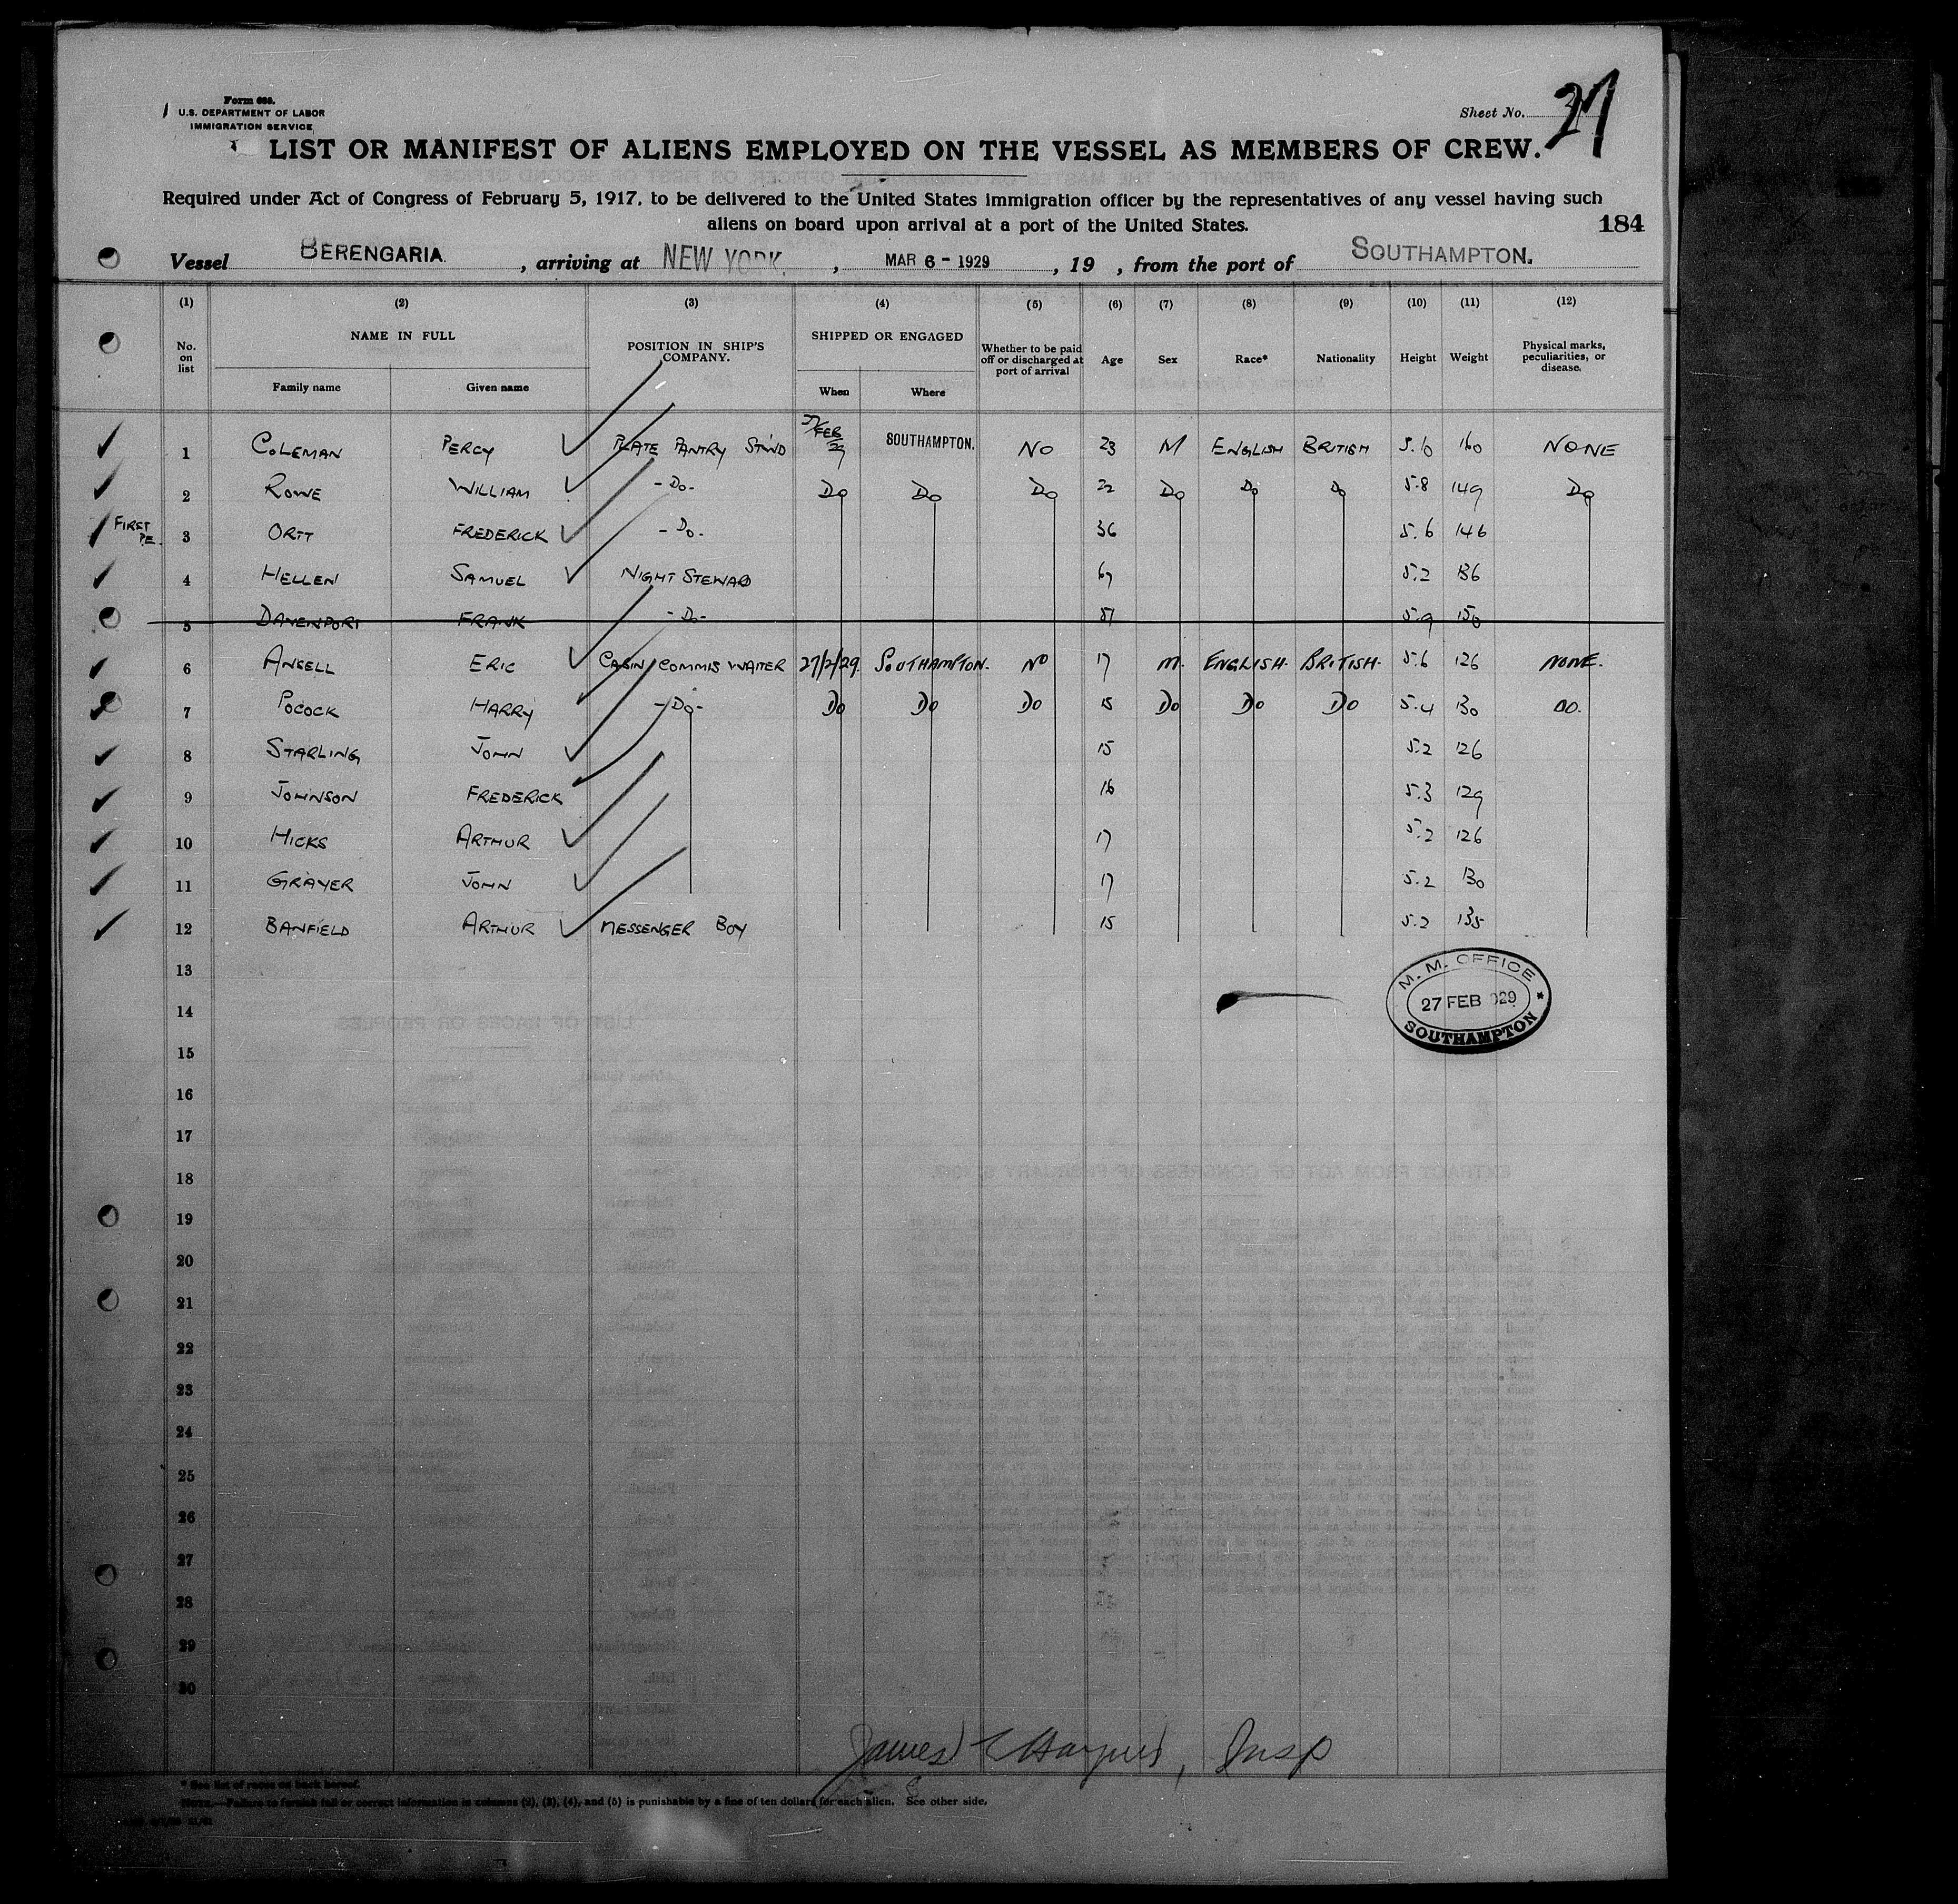 Form 689.
U.S. DEPARTMENT OF LABOR
IMMIGRATION SERVICE
Sheet No. 27
LIST OR MANIFEST OF ALIENS EMPLOYED ON THE VESSEL AS MEMBERS OF CREW.
Required under Act of Congress of February 5, 1917, to be delivered to the United States immigration officer by the representatives of any vessel having such
aliens on board upon arrival at a port of the United States.
184
Vessel BERENGARIA, arriving at NEW YORK, MAR 6 - 1929, 19 , from the port of SOUTHAMPTON.
(1) (2) (3) (4) (5) (6) (7) (8) (9) (10) (11) (12)
No. on list NAME IN FULL Family name Given name POSITION IN SHIP'S COMPANY. SHIPPED OR ENGAGED When Where Whether to be paid off or discharged at port of arrival Age Sex Race* Nationality Height Weight Physical marks, peculiarities, or disease.
1 COLEMAN PERCY PLATE PANTRY STWD FEB 29 SOUTHAMPTON. NO 23 M ENGLISH BRITISH 5.10 160 NONE
2 ROWE WILLIAM -Do- Do Do Do 22 Do Do Do 5.8 149 Do
FIRST PE. 3 ORTT FREDERICK -Do- 36 5.6 146
4 HELLEN SAMUEL NIGHT STEWARD 67 5.2 136
5 DAVENPORT FRANK -Do- 51 5.9 150
6 ANSELL ERIC CABIN COMMIS WAITER 27/2/29. SOUTHAMPTON. NO 17 M. ENGLISH. BRITISH. 5.6 126 NONE.
7 POCOCK HARRY -Do- Do Do Do 15 Do Do Do 5.4 130 DO.
8 STARLING JOHN 15 5.2 126
9 JOHNSON FREDERICK 16 5.3 129
10 HICKS ARTHUR 17 5.2 126
11 GRAYER JOHN 17 5.2 130
12 BANFIELD ARTHUR MESSENGER BOY 15 5.2 135
13
M. M. OFFICE
27 FEB 1929
SOUTHAMPTON
14
15
16
17
18
19
20
21
22
23
24
25
26
27
28
29
30
James Insp
* See list of races on back hereof.
NOTE.—Failure to furnish full or correct information in columns (2), (3), (4), and (5) is punishable by a fine of ten dollars for each alien. See other side.